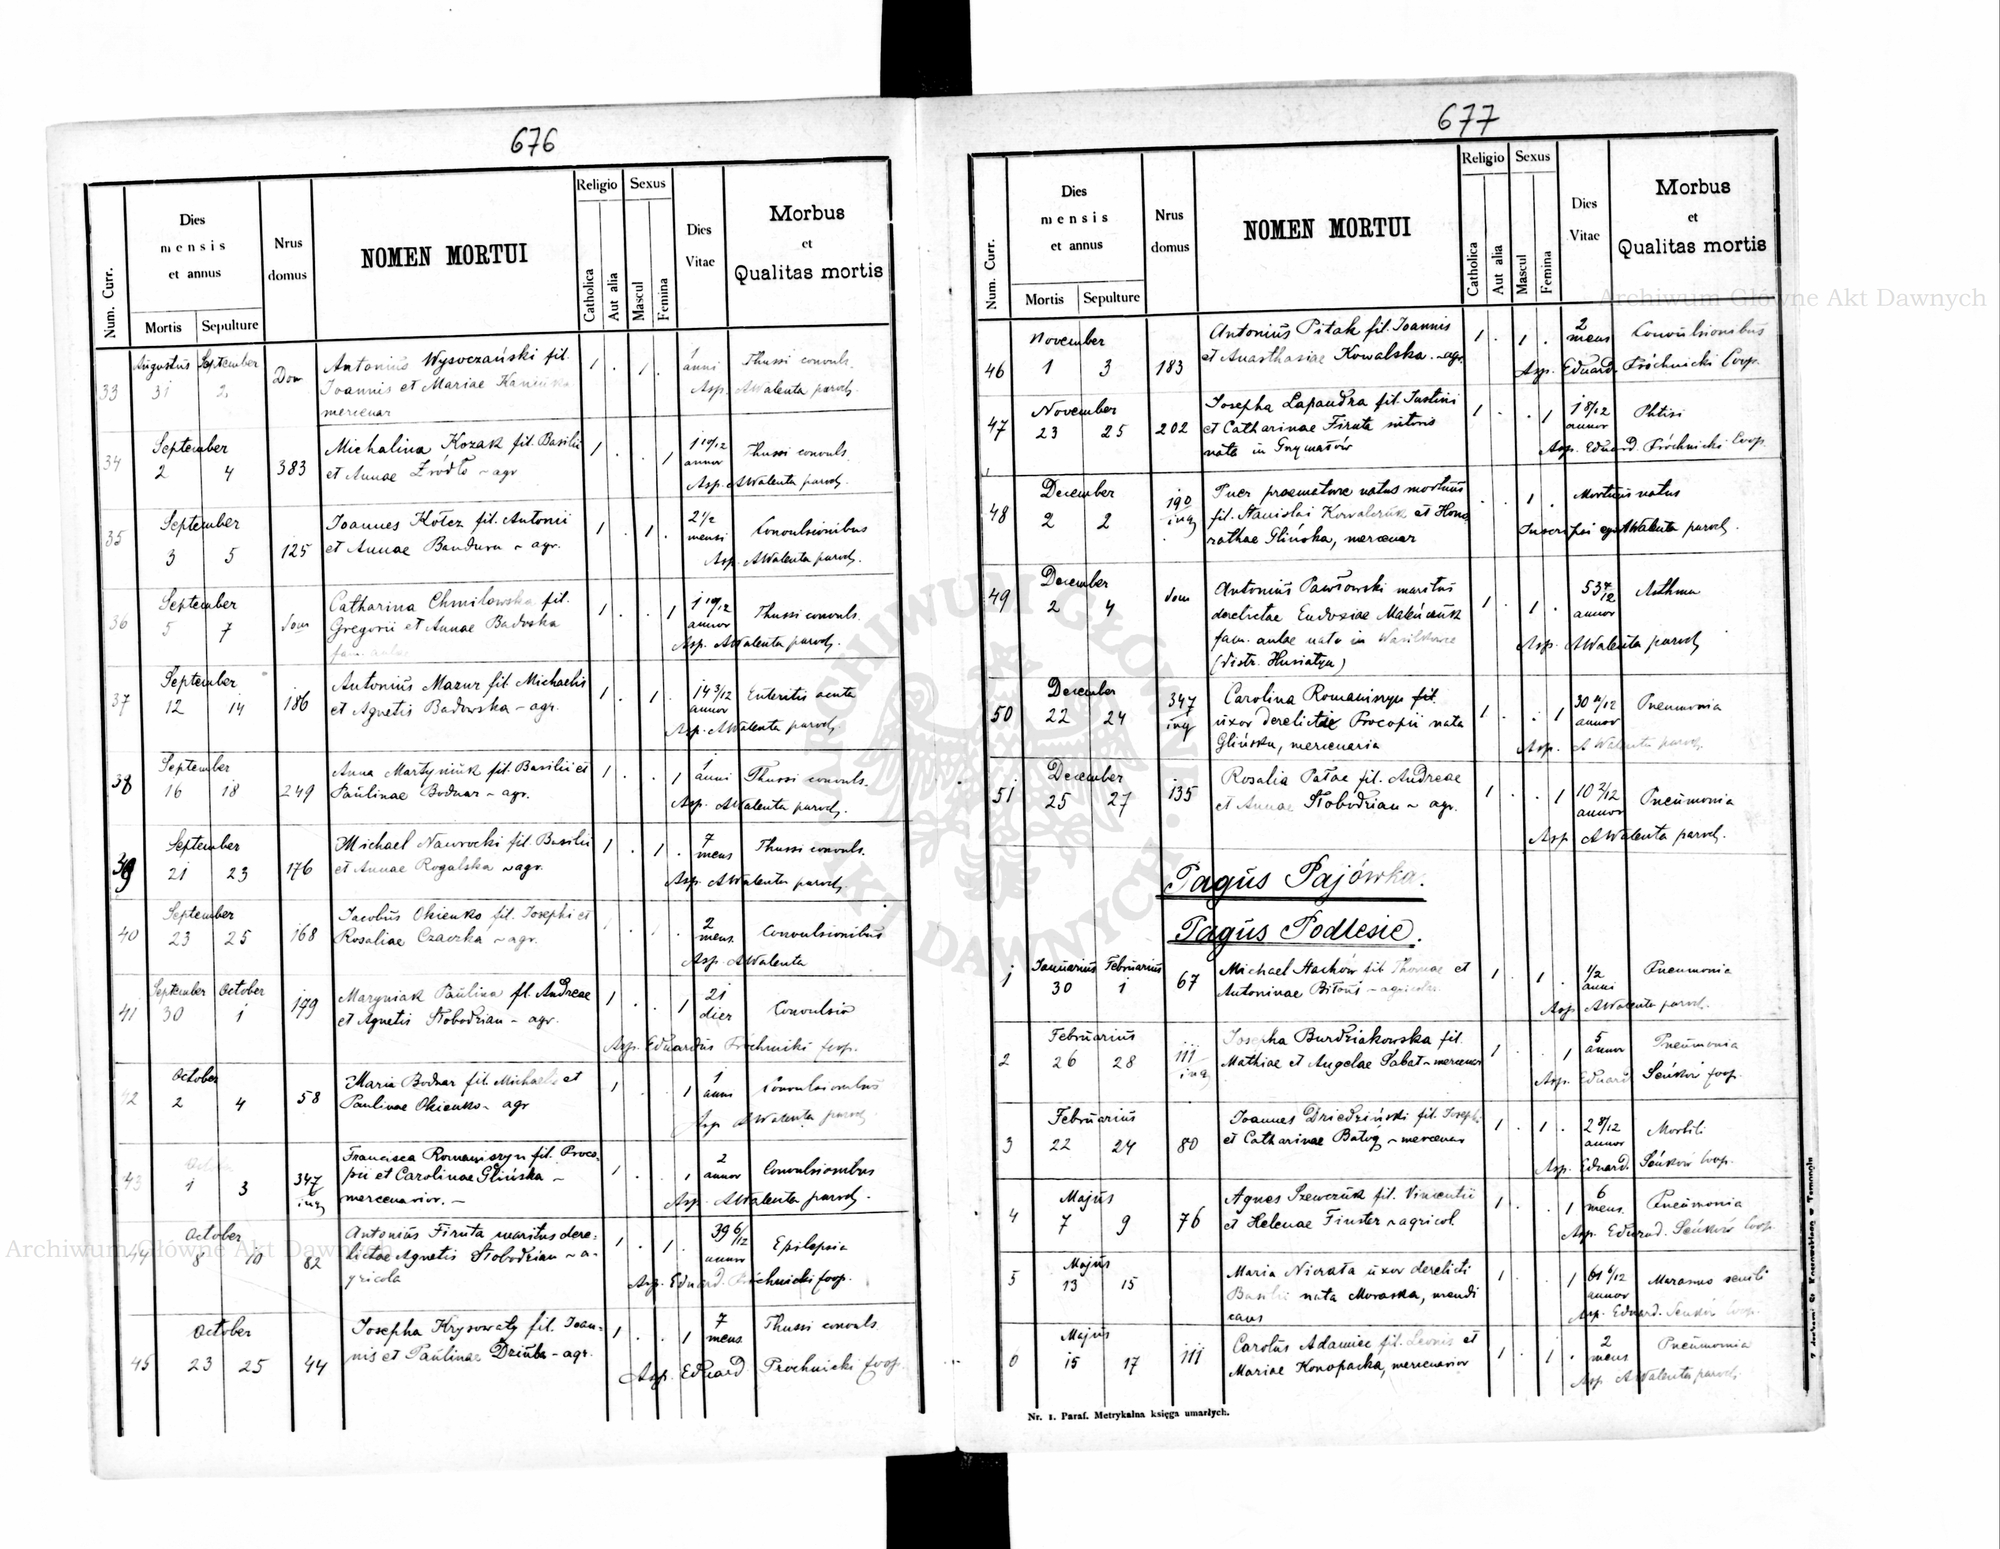 676
Num. Curr.
Dies
mensis
et annus
Mortis
Sepulture
Nrus
domus
NOMEN MORTUI
Religio
Catholica
Aut alia
Sexus
Mascul
Femina
Dies
Vitae
Morbus
et
Qualitas mortis
33 Augustus 31 September 2 Dom
Antonius Wysoczański fil.
Joannis et Mariae
mercenar
1 . 1 . 1 anni Thussi convuls.
Asp. AWalenta paroch.
34 September 2 4 383
Michalina Kozak fil. Basilii
et Annae Źródło ~ agr
1 . . 1 1 10/12 annor Thussi convuls.
Asp. AWalenta paroch.
35 September 3 5 125
Joannes Kołcz fil. Antonii
et Annae Bandura ~ agr.
1 . 1 . 2 1/2 mensi Convulsionibus
Asp. AWalenta paroch.
36 September 5 7 dom
Catharina Chmilowska fil.
Gregorii et Annae Badoska
fam. aulae
1 . . 1 1 10/12 annor Thussi convuls.
Asp. AWalenta paroch.
37 September 12 14 186
Antonius Mazur fil. Michaelis
et Agnetis Badowska ~ agr.
1 . 1 . 14 3/12 annor Enteritis acuta
Asp. AWalenta paroch.
38 September 16 18 249
Anna Martyniuk fil. Basilii et
Paulinae Bodnar ~ agr.
1 . . 1 1 anni Thussi convuls.
Asp. AWalenta paroch.
39 September 21 23 176
Michael Naworocki fil. Basilii
et Annae Rogalska ~ agr.
1 . 1 . 7 mens Thussi convuls.
Asp. AWalenta paroch.
40 September 23 25 168
Jacobus Okienko fil. Josephi et
Rosaliae Czaczka ~ agr.
1 . 1 . 2 mens. Convulsionibus
Asp. AWalenta
41 September 30 October 1 179
Maryniak Paulina fil. Andreae
et Agnetis Słobodzian ~ agr.
1 . . 1 21 dier Convulsio
Asp. Eduardus Próchnicki Coop.
42 October 2 4 58
Maria Bodnar fil. Michaelis et
Paulinae Okienko ~ agr
1 . . 1 1 anni Convulsionibus
Asp AWalenta paroch.
43 October 1 3 347 inq
Francisca Romaniszyn fil. Proco-
pii et Carolinae Glińska ~
mercenarior. ~
1 . . 1 2 annor Convulsionibus
Asp. AWalenta paroch.
44 October 8 10 82
Antonius Firuta maritus dere-
lictae Agnetis Słobodzian ~ a-
gricola
1 . 1 . 39 6/12 annor Epilepsia
Asp. Eduard. Próchnicki Coop.
45 October 23 25 44
Josepha Krysowaty fil. Joan-
nis et Paulinae Dziuba ~ agr.
1 . . 1 7 mens Thussi convuls.
Asp. Eduard Prochnicki Coop.
677
Num. Curr.
Dies
mensis
et annus
Mortis
Sepulture
Nrus
domus
NOMEN MORTUI
Religio
Catholica
Aut alia
Sexus
Mascul
Femina
Dies
Vitae
Morbus
et
Qualitas mortis
46 November 1 3 183
Antonius Pitak fil. Joannis
et Anasthasiae Kowalska ~ agr.
1 . 1 . 2 mens Convulsionibus
Asp. Eduard. Próchnicki Coop.
47 November 23 25 202
Josepha Lapandra fil. Justini
et Catharinae Firuta sutoris
nata in Grymałów
1 . . 1 1 8/12 annor Phtisi
Asp. Eduard. Próchnicki Coop.
48 December 2 2 190 inq
Puer praemature natus mortuus
fil. Stanislai Kowalczuk et Hono-
rathae Glińska, mercenar
. . 1 . Mortuus natus
Inscripsi ego AWalenta paroch.
49 December 2 4 dom
Antonius Pawłowski maritus
derelictae Eudoxiae
fam. aulae nata in Wasilkowce
(distr. Husiatyn)
1 . 1 . 53 7/12 annor Asthma
Asp. AWalenta paroch
50 December 22 24 347 inq
Carolina Romaniszyn fil.
uxor derelictae Procopii nata
Glińska, mercenaria
1 . . 1 30 annor Pneumonia
Asp. AWalenta paroch.
51 December 25 27 135
Rosalia Pałac fil. Andreae
et Annae Słobodzian ~ agr.
1 . . 1 10 2/12 annor Pneumonia
Asp AWalenta paroch.
Pagus Pajówka.
Pagus Podlesie.
1 Januarius 30 Februarius 1 67
Michael Hachów fil Thomae et
Antoninae Bitous ~ agricolar.
1 . 1 . 1/2 anni Pneumonia
Asp AWalenta paroch.
2 Februarius 26 28 111 inq
Josepha Burdziakowska fil.
Mathiae et Angelae Sabat ~ mercenar
1 . . 1 5 annor Pneumonia
Asp. Eduard Seńków Coop.
3 Februarius 22 24 80
Joannes Dziedziński fil. Josephi
et Catharinae Batog ~ mercenar
1 . 1 . 2 8/12 annor Morbili
Asp. Eduard. Seńków Coop.
4 Majus 7 9 76
Agnes Szewczuk fil. Vincentii
et Helenae Finster ~ agricol.
1 . . 1 6 mens. Pneumonia
Asp. Eduard. Seńków Coop.
5 Majus 13 15
Maria Nicrata uxor derelicti
Basilii nata Moraska, mendi
cans
1 . . 1 61 6/12 annor Marasmo senili
Asp. Eduard. Seńków Coop.
6 Majus 15 17 111
Carolus Adamiec fil. Leonis et
Mariae Konopacka, mercenarior
1 . 1 . 2 mens Pneumonia
Asp AWalenta paroch.
Nr. 1. Paraf. Metrykalna księga umarłych.
Archiwum Główne Akt Dawnych
Archiwum Główne Akt Dawnych
ARCHIWUM GŁÓWNE AKT DAWNYCH